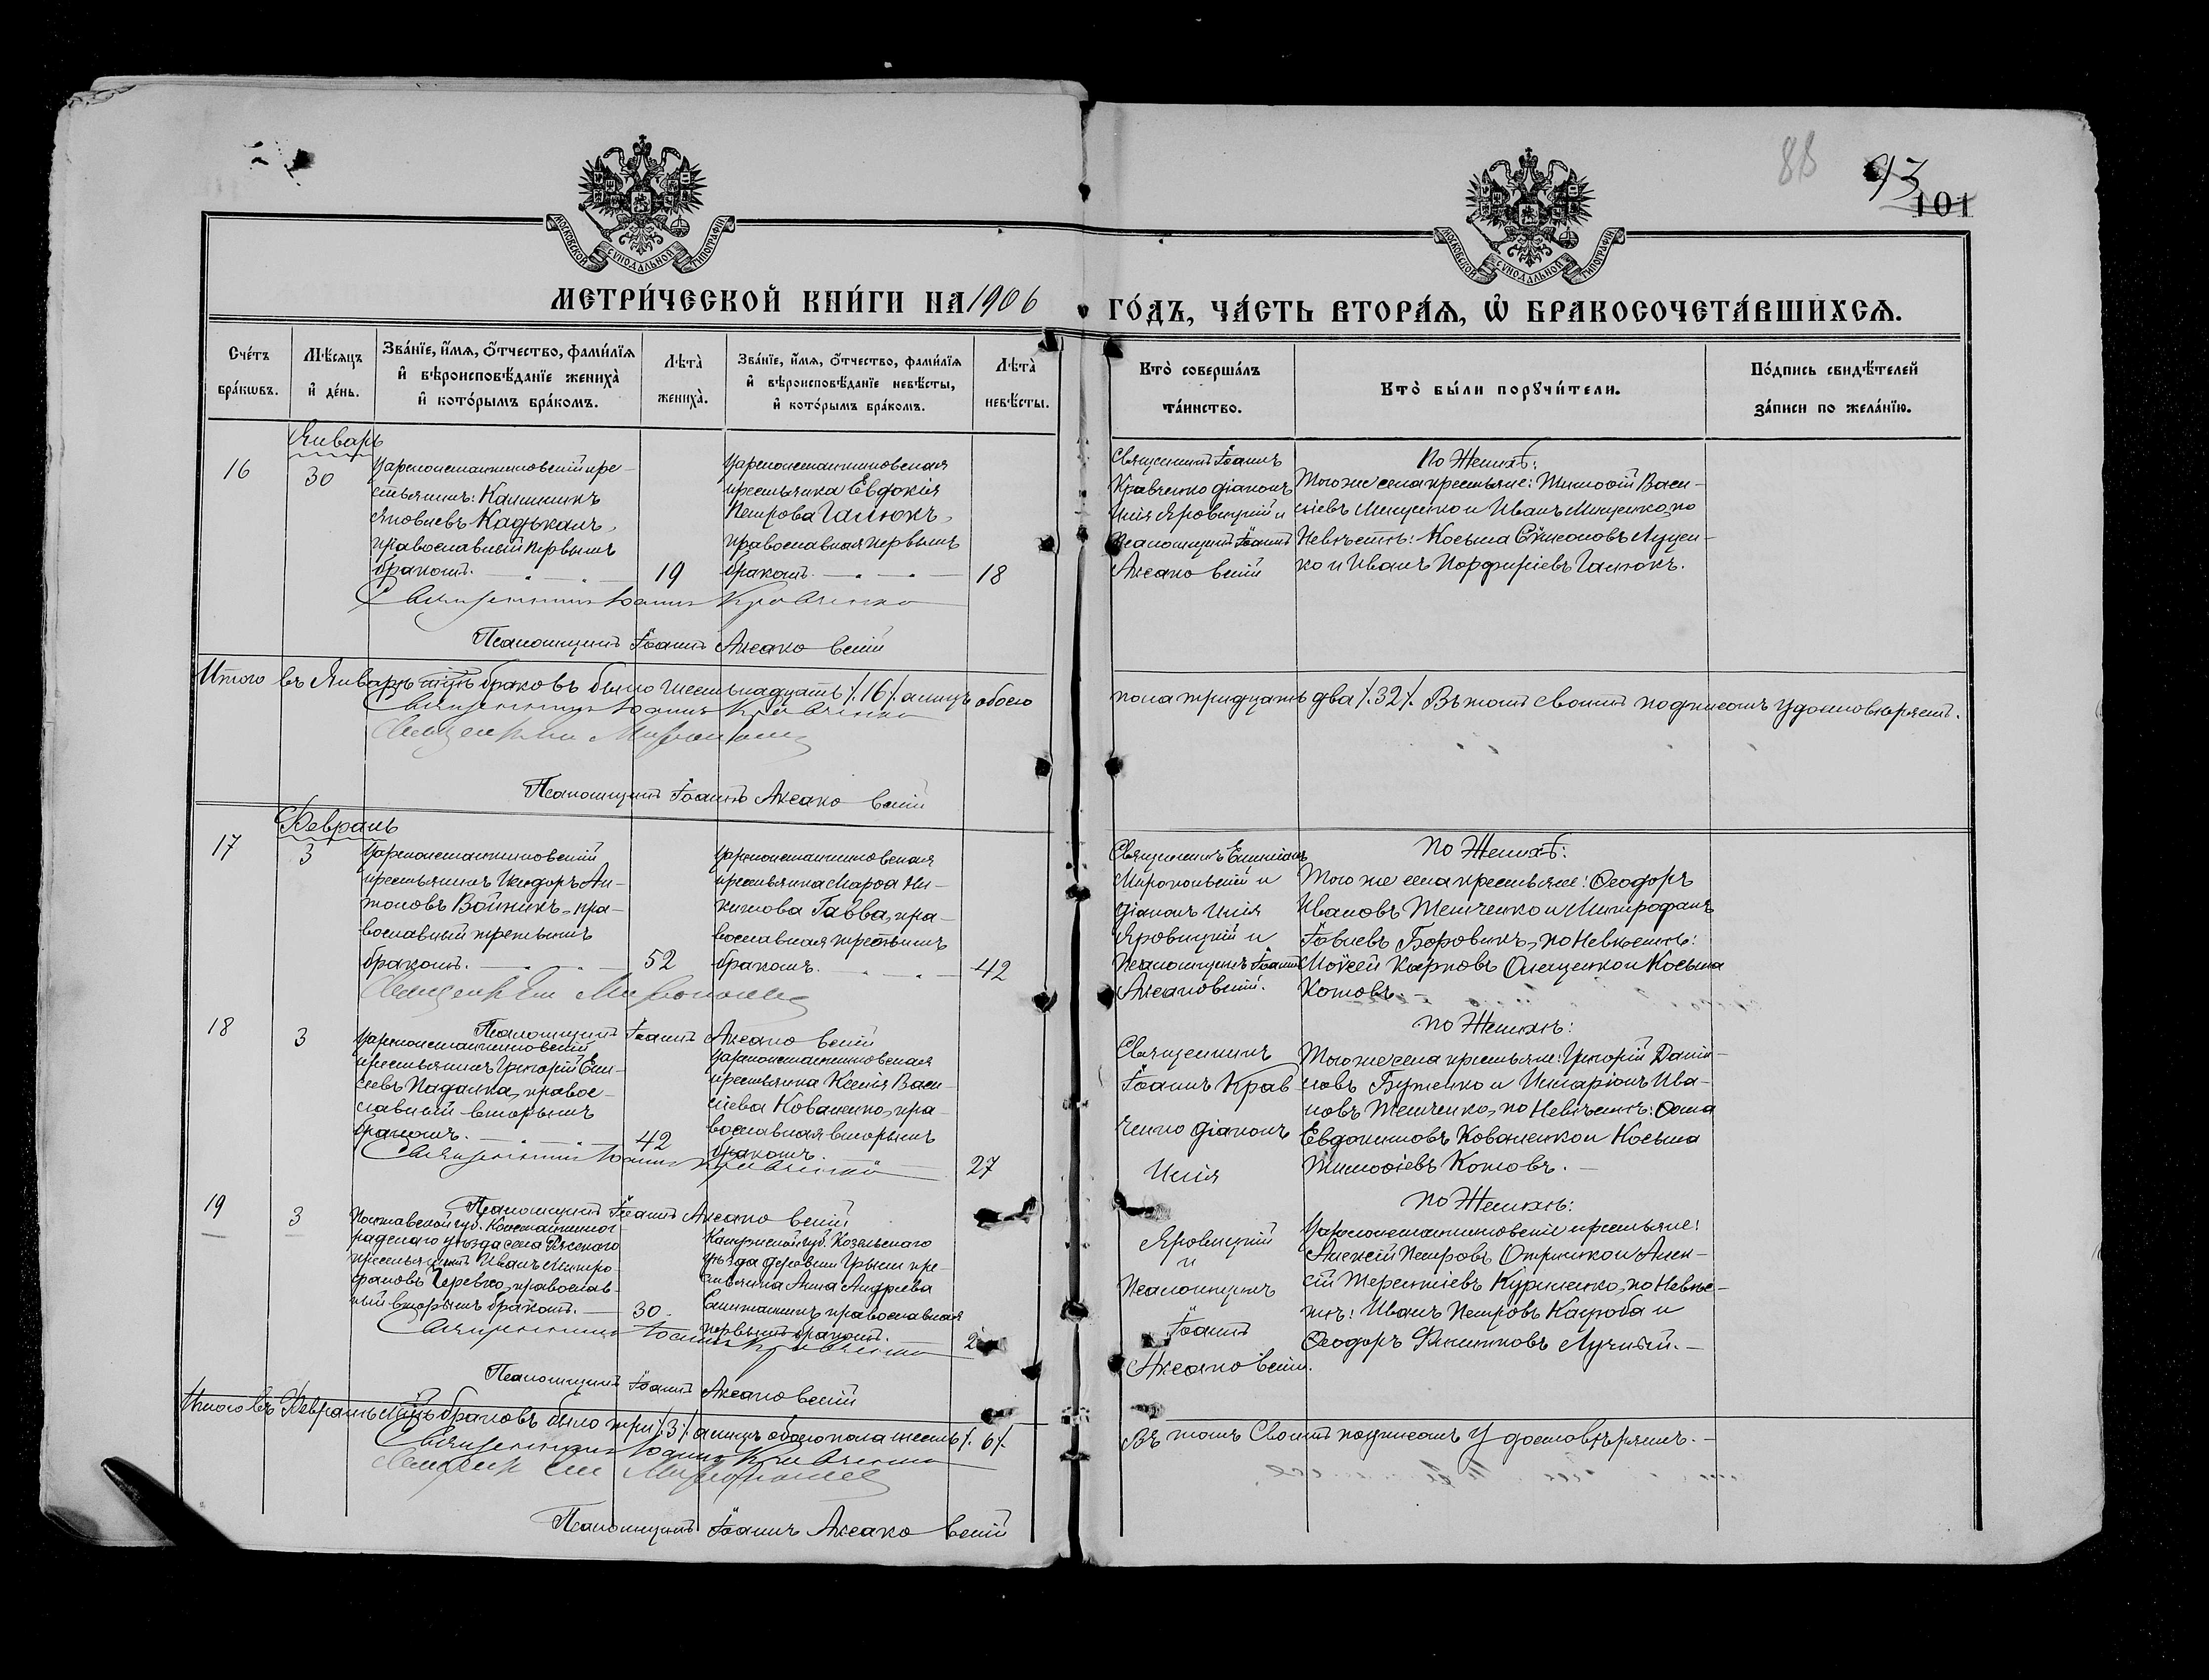 МОСКОВСКОЙ СѴНОДАЛЬНОЙ ТИПОГРАФІИ
МОСКОВСКОЙ СѴНОДАЛЬНОЙ ТИПОГРАФІИ
88 93
101
МЕТРИ́ЧЕСКОЙ КНИ́ГИ НА 1906
ГО́ДЪ, ЧА́СТЬ ВТОРА́Ѧ, Ѡ БРАКОСОЧЕТА́ВШИХСѦ.
Сче́тъ бра́кѡвъ.
Мѣ́сяцъ и҆ де́нь.
Зва́нїе, и҆́мѧ, ѻ҆́тчество, фами́лїѧ
и҆ вѣроисповѣ́данїе жениха̀
и҆ кото́рымъ бра́комъ.
Лѣта̀ жениха̀.
Зва́нїе, и҆́мѧ, ѻ҆́тчество, фами́лїѧ
и҆ вѣроисповѣ́данїе невѣ́сты,
и҆ кото́рымъ бра́комъ.
Лѣта̀ невѣ́сты.
Кто̀ соверша́лъ та́инство.
Кто̀ бы́ли порꙋчи́тели.
По́дпись свидѣ́телей
за́писи по жела́нїю.
Январь
16
30
Цареконстантиновскій кре-
стьянинъ: Калиникъ
Яковлевъ Кадькалъ,
православный первымъ
бракомъ.
19
Цареконстантиновская
крестьянка Евдокія
Петрова Галюкъ,
православная первымъ
бракомъ.
18
Священникъ Іоаннъ
Кравченко діаконъ
Илія Яровицкій и
Псаломщикъ Іоаннъ
Аксаковскій
По Женихѣ:
Того же села крестьяне: Тимофей Васи-
ліевъ Мищенко и Иванъ Мищенко, по
Невѣстѣ: Косьма Сѵмеоновъ Луцен-
ко и Иванъ Порфиріевъ Галюкъ.
Священникъ Іоаннъ Кравченко
Псаломщикъ Іоаннъ Аксаковскій
Итого въ Январѣ мцѣ браковъ было шестьнадцать /.16/. а лицъ обоего
пола тридцать два /.32/. Въ томъ своимъ подписомъ удостовѣряемъ.
Священникъ Іоаннъ Кравченко
Псаломщикъ Іоаннъ Аксаковскій
Февраль
17
3
Цареконстантиновскій
крестьянинъ Исидоръ Ан-
тоновъ Войникъ, пра-
вославный третьимъ
бракомъ.
52
Цареконстантиновская
крестьянка Марѳа Ни-
китова Гавва, пра-
вославная третьимъ
бракомъ.
42
Священникъ
и
діаконъ Илія
Яровицкій и
Псаломщикъ Іоаннъ
Аксаковскій.
По Женихѣ:
Того же села крестьяне: Ѳеодоръ
Ивановъ Темченко и Митрофанъ
Іовлевъ Боровикъ, по Невѣстѣ:
Моѵсей Карповъ Онищенко и Косьма
Котовъ.
Псаломщикъ Іоаннъ Аксаковскій
18
3
Цареконстантиновскій
крестьянинъ Григорій Ели-
сеевъ Падалка, правос-
лавный вторымъ
бракомъ.
42
Цареконстантиновская
крестьянка Ксенія Васи-
ліева Коваленко, пра-
вославная вторымъ
бракомъ.
27
Священникъ
Іоаннъ Крав-
ченко діаконъ
Илія
Яровицкій
и
Псаломщикъ
Іоаннъ
Аксаковскій.
По Женихѣ:
Того же села крестьяне: Григорій Дані-
ловъ Бутенко и Иларіонъ Ива-
новъ Темченко, по Невѣстѣ: Ѳома
Евдокимовъ Коваленко и Косьма
Тимоѳіевъ Котовъ.
Священникъ Іоаннъ Кравченко
Псаломщикъ Іоаннъ Аксаковскій
19
3
Полтавской губ. Константиног-
радскаго уѣзда села Рясского
крестьянинъ Иванъ Митро-
фановъ Черевко, православ-
ный вторымъ бракомъ.
30
Калужской губ. Козельскаго
уѣзда деревни Грыни кре-
стьянка Анна Андреева
православная
первымъ бракомъ.
По Женихѣ:
Цареконстантиновскіе крестьяне:
Алексѣй Петровъ и Алек-
сѣй Терентіевъ Куриленко, по Невѣс-
тѣ: Иванъ Петровъ и
Ѳеодоръ Филиповъ
Священникъ Іоаннъ Кравченко
Псаломщикъ Іоаннъ Аксаковскій
Итого въ Февралѣ мцѣ браковъ было три /.3/. а лицъ обоего пола шесть /.6/.
Въ томъ Своимъ подписомъ Удостовѣряемъ.
Священникъ Іоаннъ Кравченко
Псаломщикъ Іоаннъ Аксаковскій